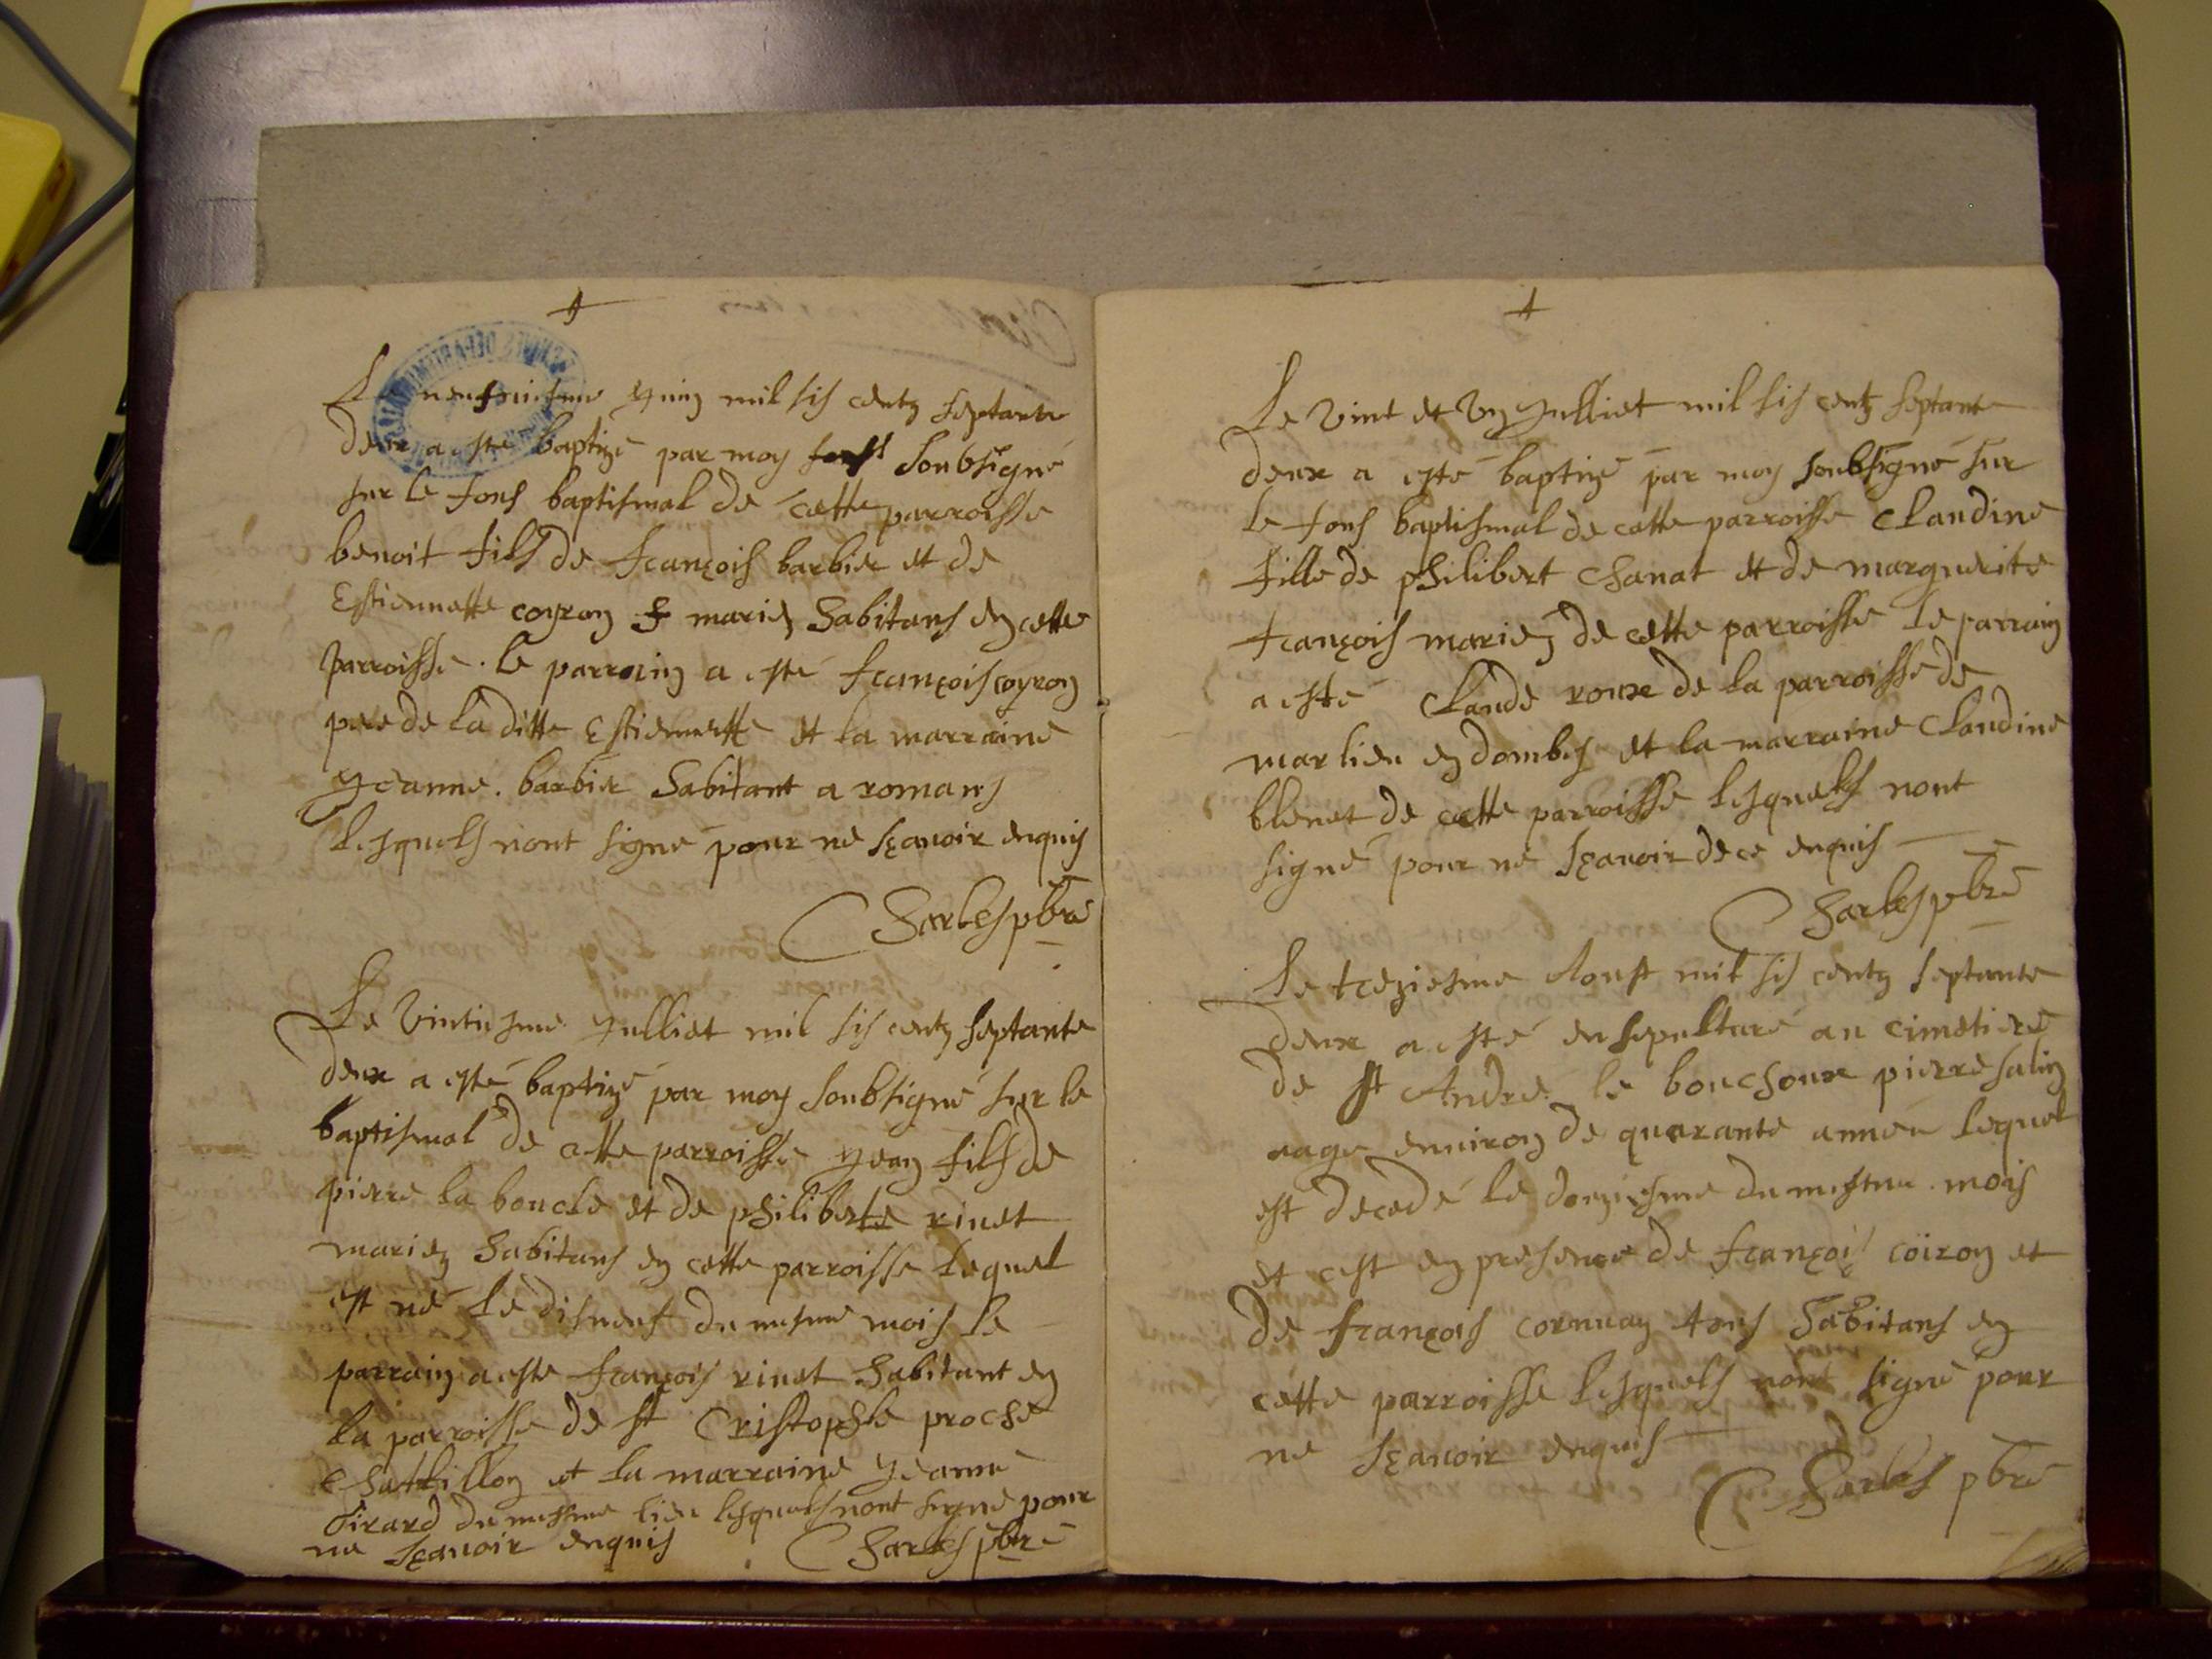 Le neufviesme yuin mil sis centz septante
deux a esté baptizé par moy soubsigné
sur le fons baptismal de cette parroisse
benoit fils de françois barbier et de
Estiennette coyron mariez habitans en cette
parroisse . le parrain a esté françois coyron
pere de la ditte Estiennette et la marraine
yeanne . barbier habitant a romans
lesquels nont signé pour ne sçavoir enquis
Charles pbre
Le vintiesme yulliet mil sis centz septante
deux a esté baptizé par moy soubsigné sur le
baptismal de cette parroisse yean fils de
pierre la boucle et de philiberte rivet
mariez habitans en cette parroisse lequel
est né le disneuf du mesme mois le
parrain a esté françois rivet habitant en
la parroisse de st Cristophle proche
Chattillon et la marraine yeanne
Girard du mesme lieu lesquels nont signé pour
ne sçavoir enquis Charles pbre
Le vint et un yulliet mil sis centz septante
deux a esté baptizé par moy soubsigné sur
le fons baptismal de cette parroisse Claudine
fille de philibert Chanat et de marguerite
françois mariez de cette parroisse le parrain
a esté Claude roux de la parroisse de
marlieu en dombes et la marraine Claudine
blenet de cette parroisse lesquels nont
signé pour ne sçavoir de ce enquis
Charles pbre
Le treziesme Aoust mil sis centz septante
deux a esté ensepulturé au cimetiere
de st André le bouchoux pierre salin
aage environ de quarante année lequel
est decedé le douziesme du mesme mois
et cest en presence de françois coïron et
de françois cornuay tous habitans en
cette parroisse lesquels nont signé pour
ne sçavoir enquis
Charles pbre